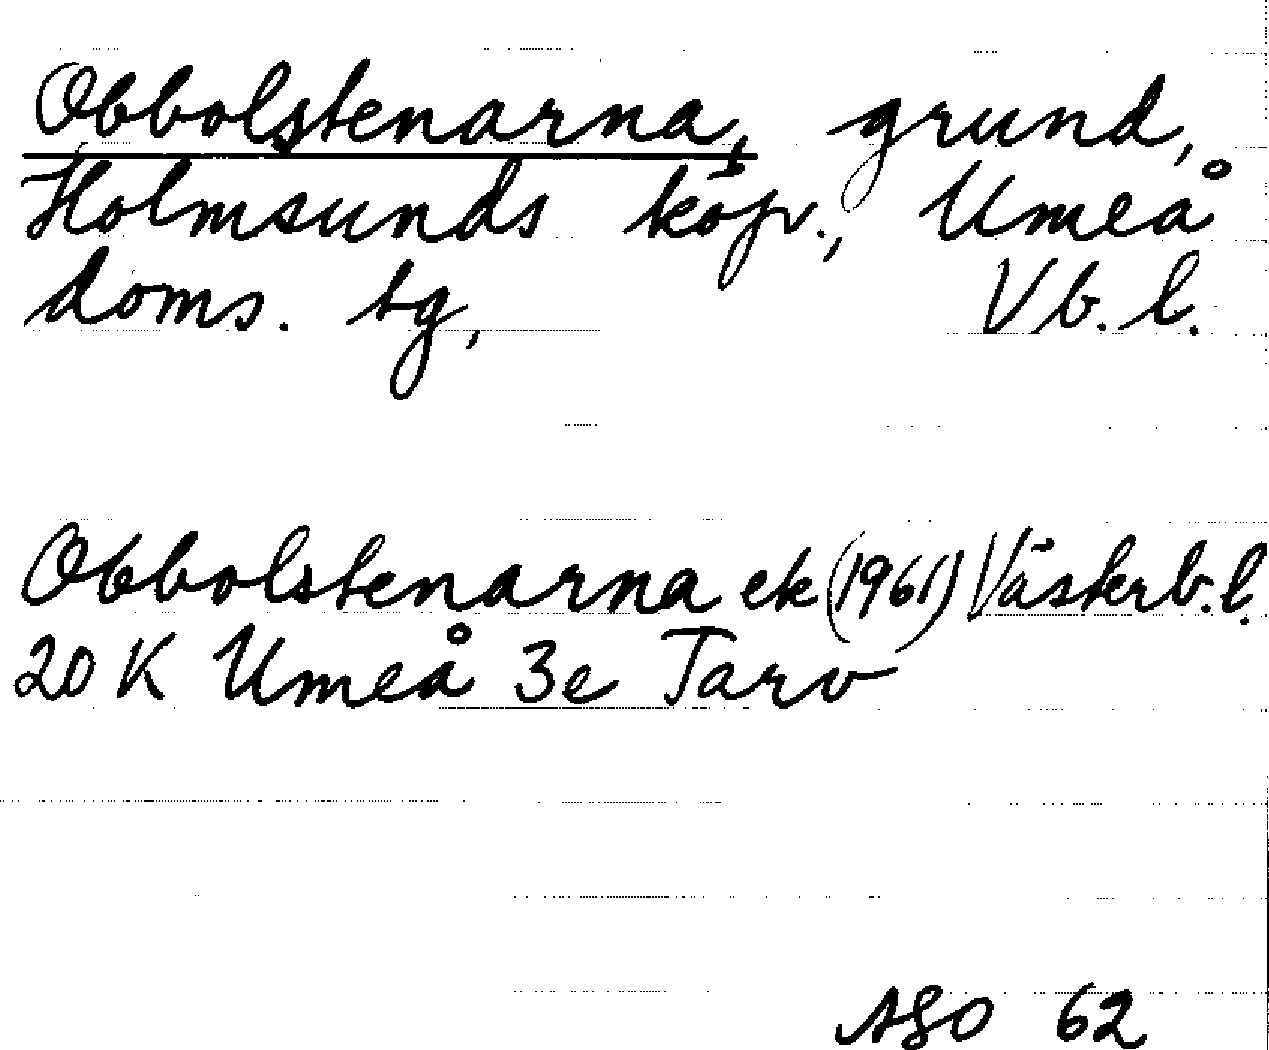 Obbolstenarna, grund,
Holmsunds köp., Umeå
doms. tg, Vb. l.
Obbolstenarna ek (1961) Västerb. l.
20 K Umeå 3e Tarv
ASO 62